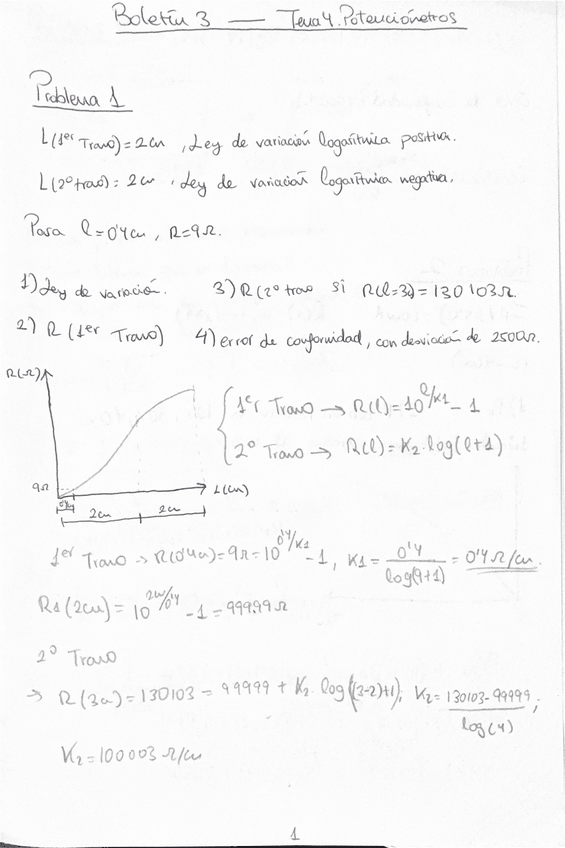 Boletín 3 — Tema 4. Potenciómetros
Problema 1
L(1er Tramo) = 2cm , Ley de variación logarítmica positiva.
L(2º tramo) = 2 cm , Ley de variación logarítmica negativa.
Para l = 0'4cm , R = 9Ω.
1) Ley de variación. 3) R(2º tramo si R(l=3) = 130103Ω.
2) R (1er Tramo) 4) error de conformidad, con desviación de 2500Ω.
R(Ω)
1er Tramo → R(l) = 10^l/K1 - 1
2º Tramo → R(l) = K2·log(l+1)
9Ω
L(cm)
2cm 2cm
1er Tramo → R(0'4cm) = 9Ω = 10^0'4/K1 - 1 , K1 = 0'4/log(9+1) = 0'4Ω/cm.
R1(2cm) = 10^2cm/0'4 - 1 = 99999Ω
2º Tramo
→ R(3cm) = 130103 = 99999 + K2·log((3-2)+1); K2 = 130103-99999/log(4) ;
K2 = 100003 Ω/cm
1